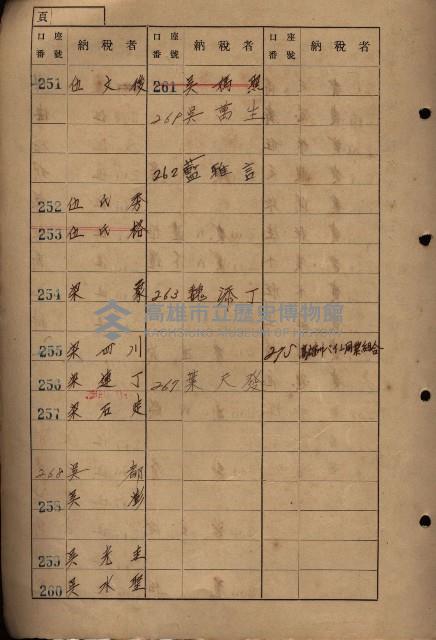 頁
口番 座號 納稅者
251 伍文俊
252 伍氏秀
253 伍氏格
254 梁
255 梁四川
256 梁連丁
257 梁石
268 吳都
258 吳澎
259 吳光圭
260 吳水聖
口番 座號 納稅者
261 吳
269 吳萬生
262 藍雅言
263 魏添丁
267 葉天發
口番 座號 納稅者
275
高雄市立歷史博物館
KAOHSIUNG MUSEUM OF HISTORY